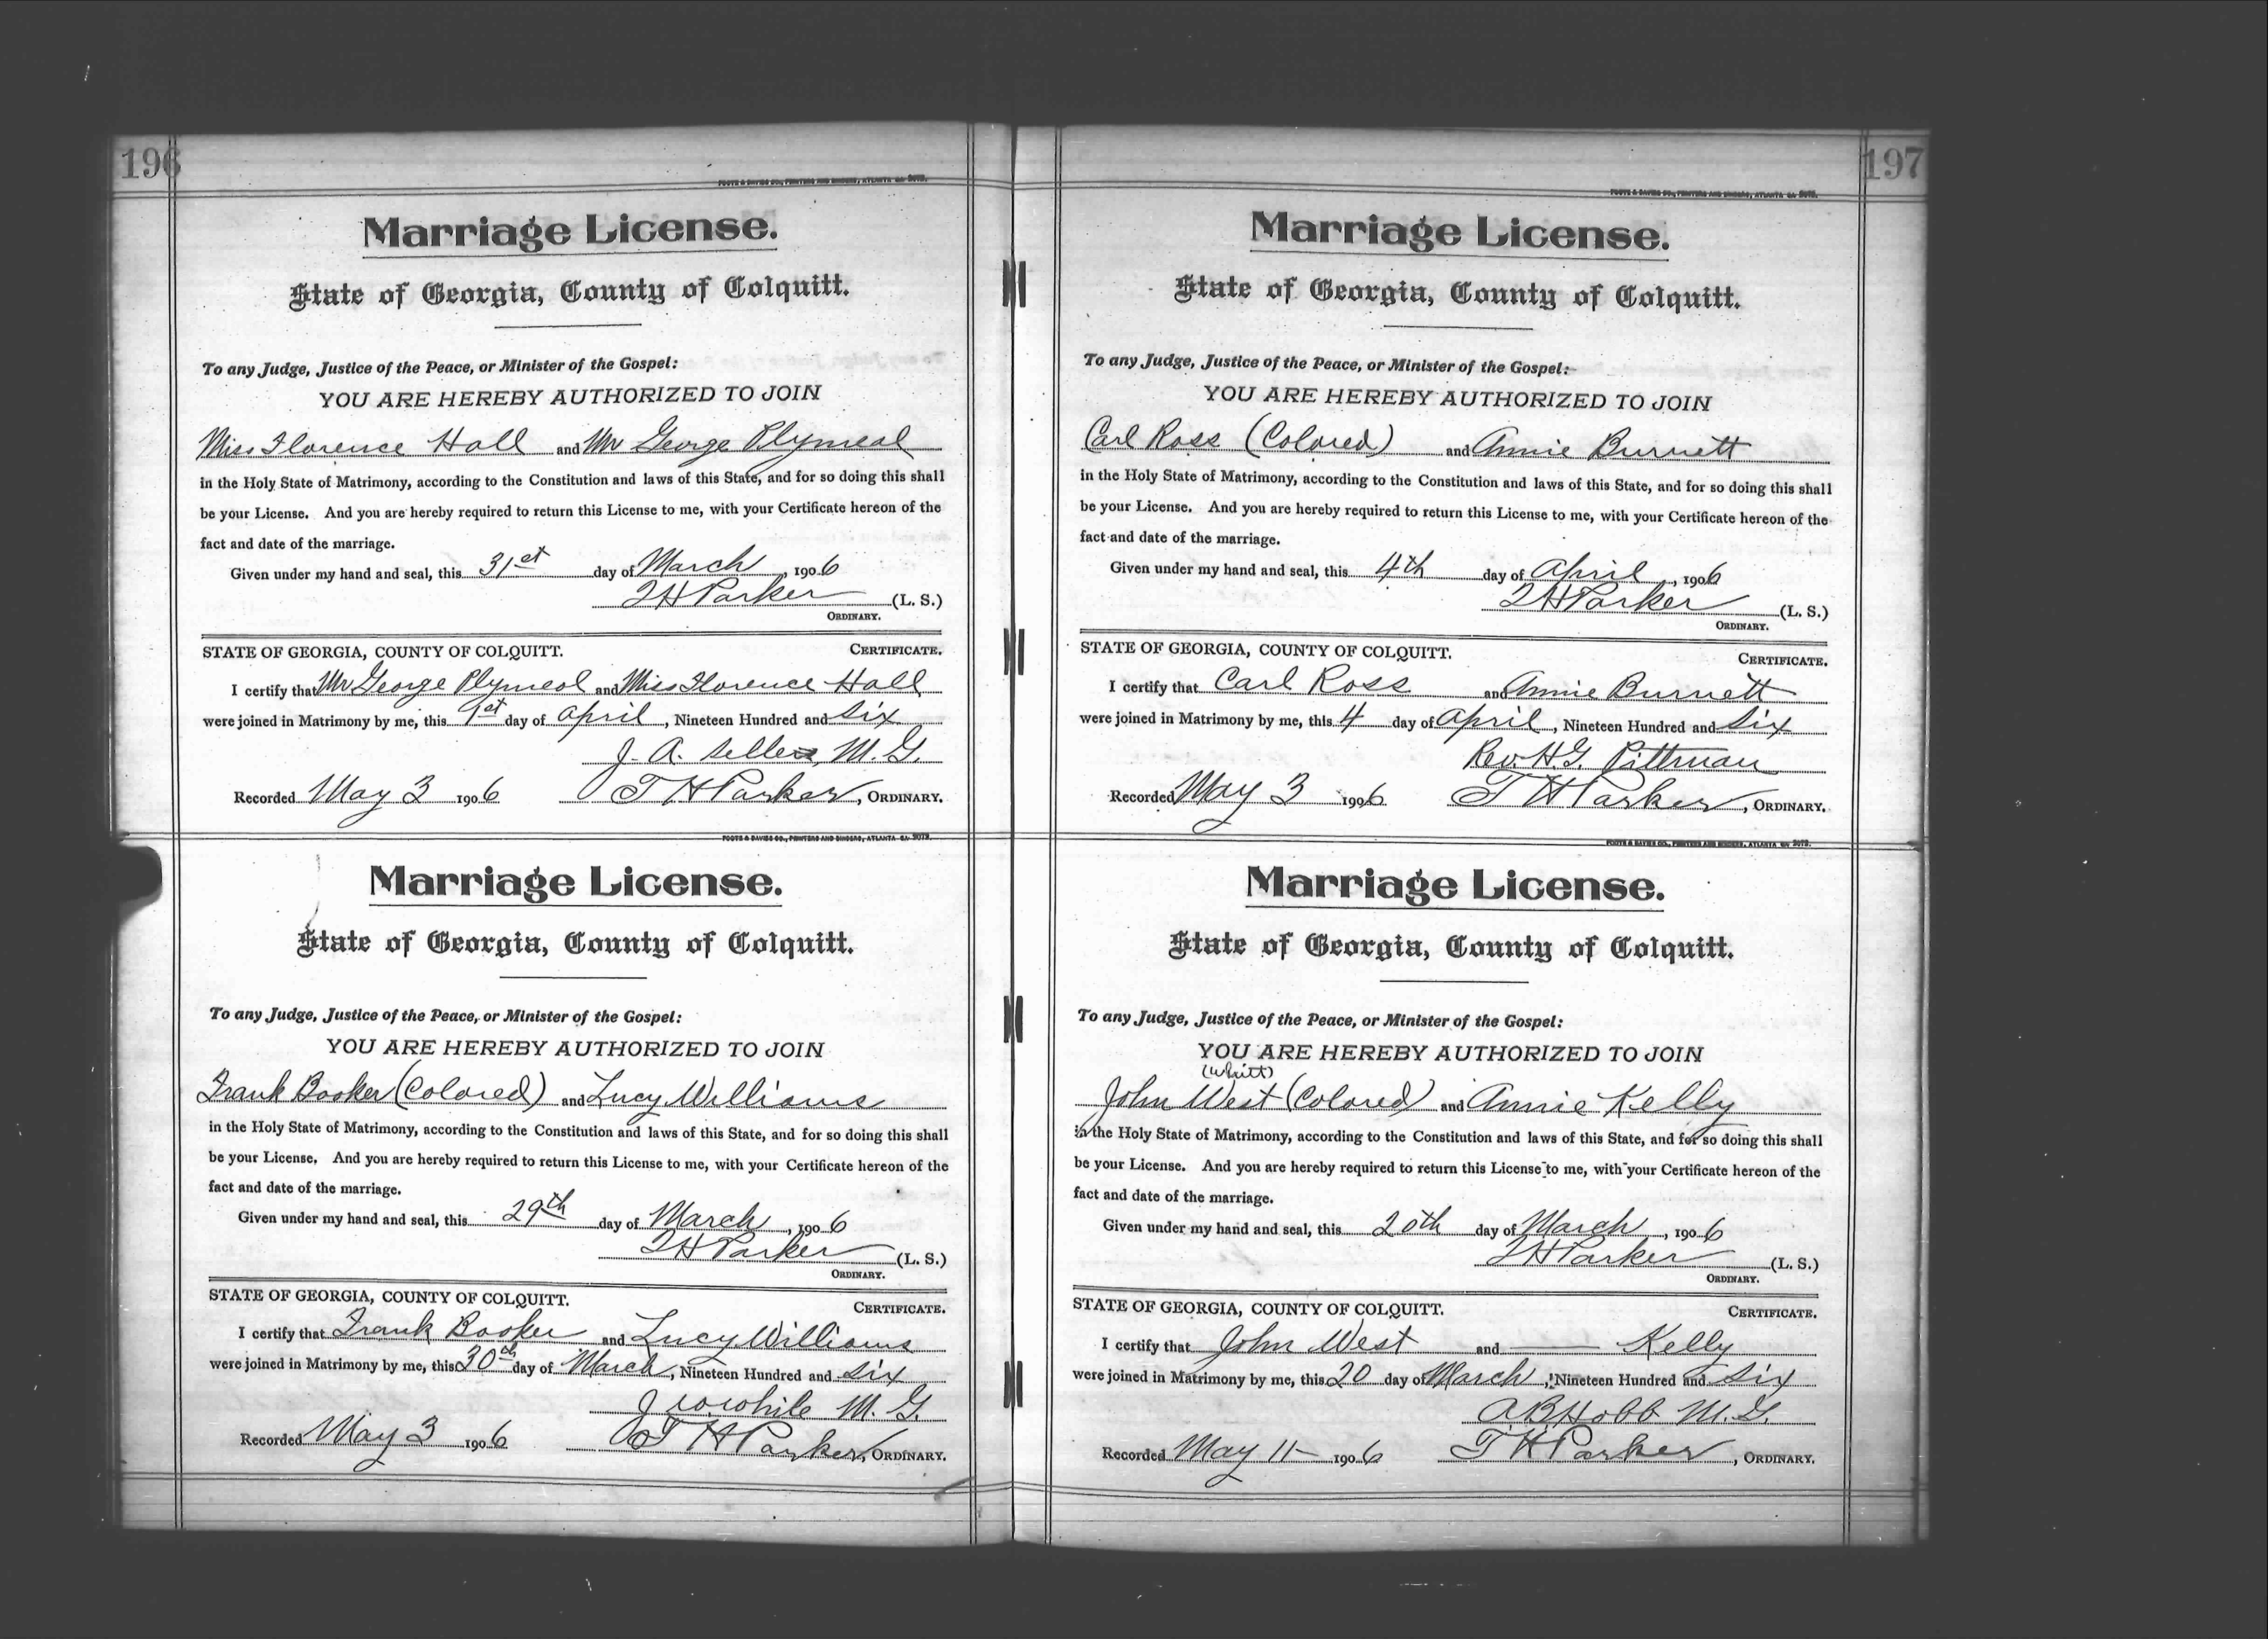 196
FOOTE & DAVIES CO., PRINTERS AND BINDERS, ATLANTA GA 3073.
Marriage License.
State of Georgia, County of Colquitt.
To any Judge, Justice of the Peace, or Minister of the Gospel:
YOU ARE HEREBY AUTHORIZED TO JOIN
Miss Florence Hall and Mr George Plymeal
in the Holy State of Matrimony, according to the Constitution and laws of this State, and for so doing this shall
be your License. And you are hereby required to return this License to me, with your Certificate hereon of the
fact and date of the marriage.
Given under my hand and seal, this 31st day of March, 1906
T H Parker (L. S.)
ORDINARY.
STATE OF GEORGIA, COUNTY OF COLQUITT. CERTIFICATE.
I certify that Mr George Plymeol and Miss Florence Hall
were joined in Matrimony by me, this 1st day of April, Nineteen Hundred and Six
J. A. M. G.
Recorded May 3 1906 T H Parker, ORDINARY.
FOOTE & DAVIES CO., PRINTERS AND BINDERS, ATLANTA GA 3073.
Marriage License.
State of Georgia, County of Colquitt.
To any Judge, Justice of the Peace, or Minister of the Gospel:
YOU ARE HEREBY AUTHORIZED TO JOIN
Frank Booker (Colored) and Lucy Williams
in the Holy State of Matrimony, according to the Constitution and laws of this State, and for so doing this shall
be your License. And you are hereby required to return this License to me, with your Certificate hereon of the
fact and date of the marriage.
Given under my hand and seal, this 29th day of March, 1906
T H Parker (L. S.)
ORDINARY.
STATE OF GEORGIA, COUNTY OF COLQUITT. CERTIFICATE.
I certify that Frank Booker and Lucy Williams
were joined in Matrimony by me, this 30th day of March, Nineteen Hundred and Six
J W White M. G.
Recorded May 3 1906 T H Parker, ORDINARY.
197
FOOTE & DAVIES CO., PRINTERS AND BINDERS, ATLANTA GA 3073.
Marriage License.
State of Georgia, County of Colquitt.
To any Judge, Justice of the Peace, or Minister of the Gospel:
YOU ARE HEREBY AUTHORIZED TO JOIN
Carl Ross (Colored) and Annie Burnett
in the Holy State of Matrimony, according to the Constitution and laws of this State, and for so doing this shall
be your License. And you are hereby required to return this License to me, with your Certificate hereon of the
fact and date of the marriage.
Given under my hand and seal, this 4th day of April, 1906
T H Parker (L. S.)
ORDINARY.
STATE OF GEORGIA, COUNTY OF COLQUITT. CERTIFICATE.
I certify that Carl Ross and Annie Burnett
were joined in Matrimony by me, this 4 day of April, Nineteen Hundred and Six
Rev. H. G. Pittman
Recorded May 3 1906 T H Parker, ORDINARY.
FOOTE & DAVIES CO., PRINTERS AND BINDERS, ATLANTA GA 3073.
Marriage License.
State of Georgia, County of Colquitt.
To any Judge, Justice of the Peace, or Minister of the Gospel:
YOU ARE HEREBY AUTHORIZED TO JOIN
(Whitt)
John West (Colored) and Annie Kelly
in the Holy State of Matrimony, according to the Constitution and laws of this State, and for so doing this shall
be your License. And you are hereby required to return this License to me, with your Certificate hereon of the
fact and date of the marriage.
Given under my hand and seal, this 20th day of March, 1906
T H Parker (L. S.)
ORDINARY.
STATE OF GEORGIA, COUNTY OF COLQUITT. CERTIFICATE.
I certify that John West and —— Kelly
were joined in Matrimony by me, this 20 day of March, Nineteen Hundred and Six
A B Hobb M. G.
Recorded May 11- 1906 T H Parker, ORDINARY.